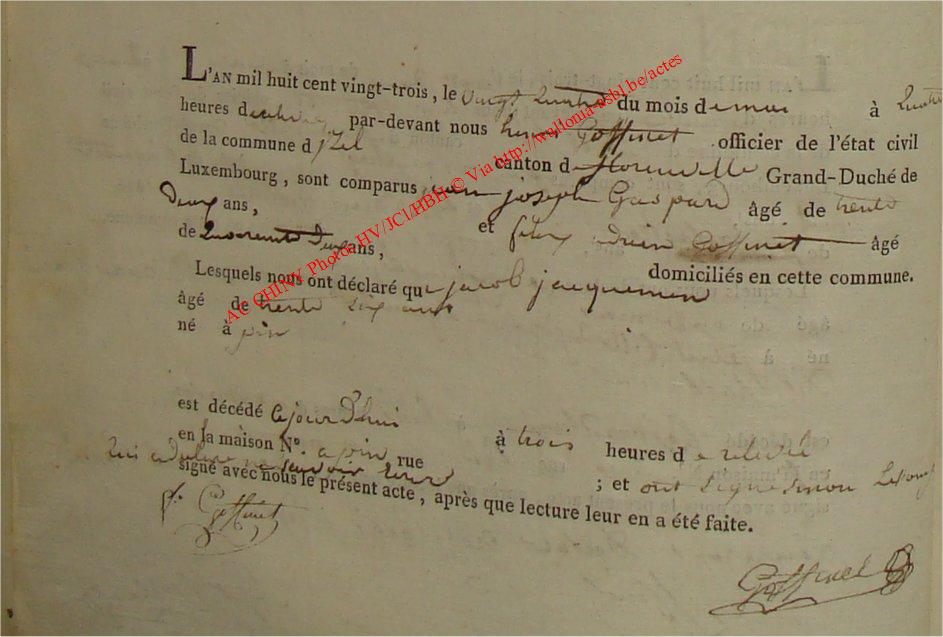 L'AN mil huit cent vingt-trois, le vingt quatre du mois de mai à quatre
heures de par-devant nous henri Goffinet officier de l'état civil
de la commune d'izel canton de florenville Grand-Duché de
Luxembourg, sont comparus jean joseph Gaspard âgé de trente
deux ans, et felix adrien Goffinet âgé
de quarente deux ans, domiciliés en cette commune.
Lesquels nous ont déclaré que jacob jacquemin
âgé de trente six ans
né à pin
est décédé ce jour d'hui
en la maison N°. a pin rue à trois heures de relevée
qui a declaré ne savoir ; et ont signé sinon
signé avec nous le présent acte, après que lecture leur en a été faite.
f. Goffinet
Goffinet
AC CHINY Photo: HV/JCl/HBH © Via http://wallonia-asbl.be/actes